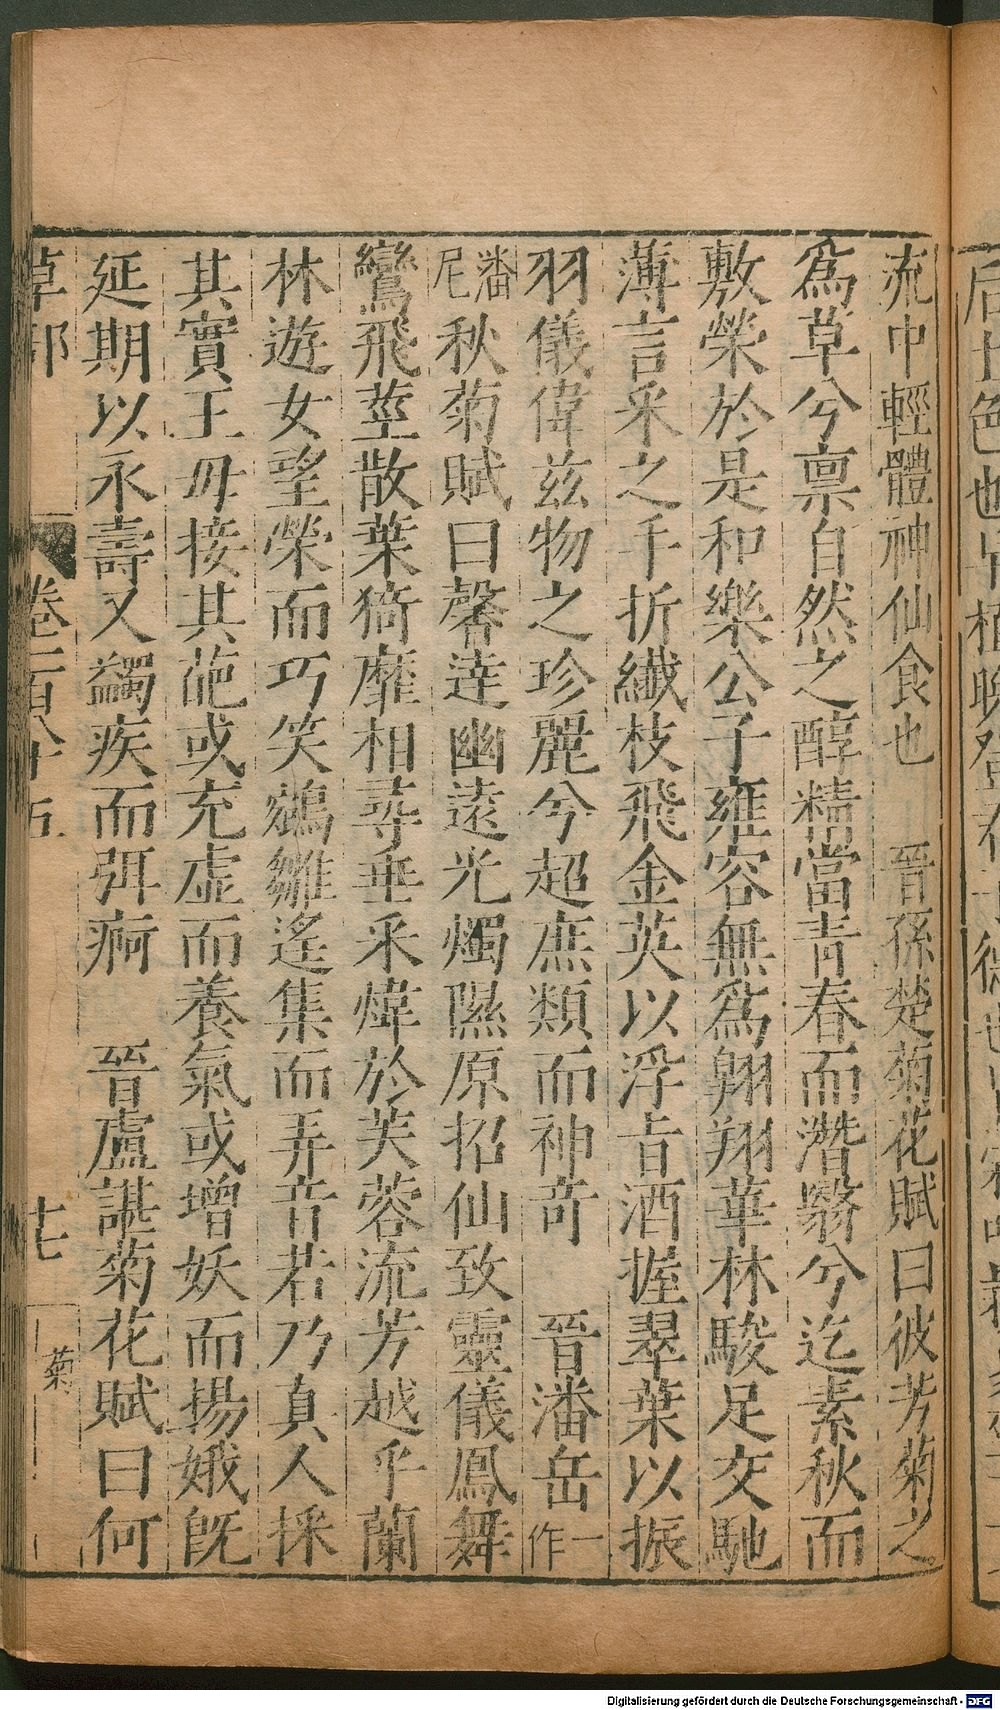 流中輕體神仙食也　晉孫楚菊花賦曰彼芳菊之
爲草兮禀自然之醇精當青春而潛翳兮迄素秋而
敷榮於是和樂公子雍容無爲翺翔華林駿足交馳
薄言采之手折纖枝飛金英以浮㫖酒握翠葉以振
羽儀偉兹物之珍麗兮超庶類而神竒　晉潘岳一作
潘尼秋菊賦曰馨達幽遠光燭隰原招仙致靈儀鳳舞
鸞飛莖散葉猗靡相尋垂采煒於芙蓉流芳越乎蘭
林遊女望榮而巧笑鵷雛遙集而弄音若乃真人採
其實王毋接其葩或充虛而養氣或增妖而揚娥旣
延期以永壽又蠲疾而弭痾　晉盧諶菊花賦曰何
草部　卷一百八十五　十七　菊
Digitalisierung gefördert durch die Deutsche Forschungsgemeinschaft - DFG